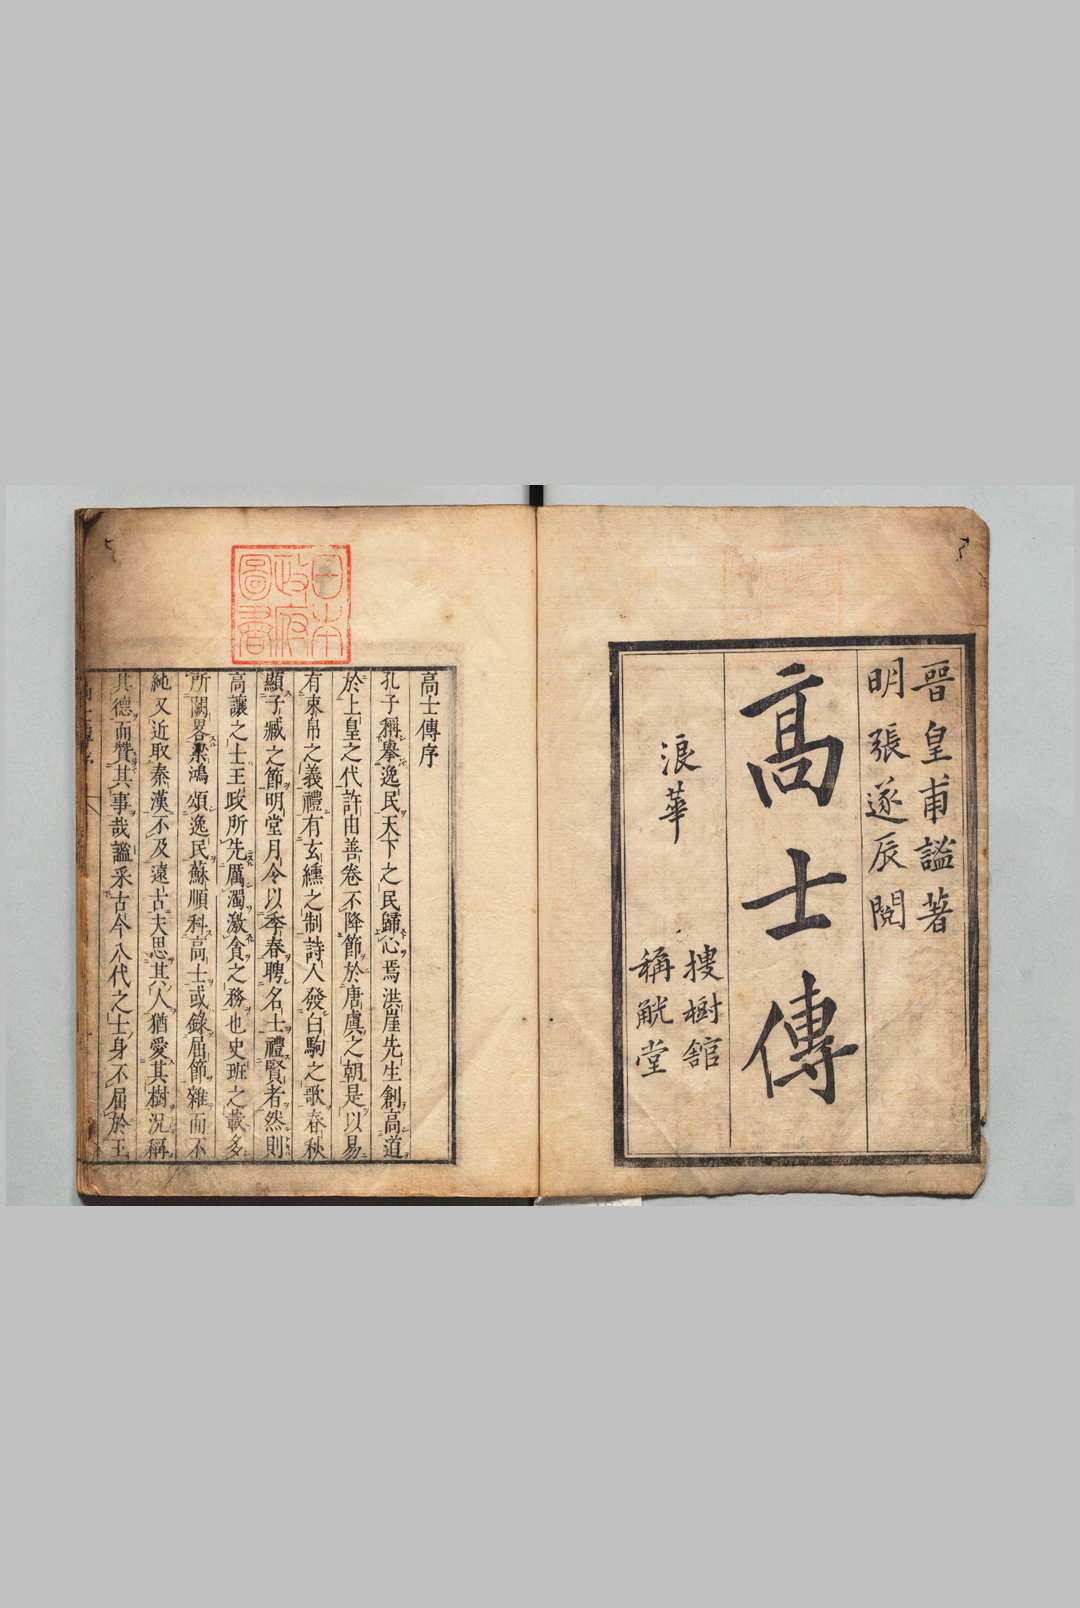 晉皇甫謐著
明張遂辰閱
高士傳
浪華
搜樹舘
稱觥堂
日本
政府
圖書
高士傳序
孔子稱擧逸民天下之民歸心焉洪崖先生創高道
於上皇之代許由善卷不降節於唐虞之朝是以易
有束帛之義禮有玄纁之制詩人發白駒之歌春秋
顯子臧之節明堂月令以季春聘名士禮賢者然則
高讓之士王政所先厲濁激貪之務也史班之載多
所闕畧梁鴻頌逸民蘇順科高士或錄屈節雜而不
純又近取秦漢不及遠古夫思其人猶愛其樹況稱
其德而贊其事哉謐采古今八代之士身不屈於王